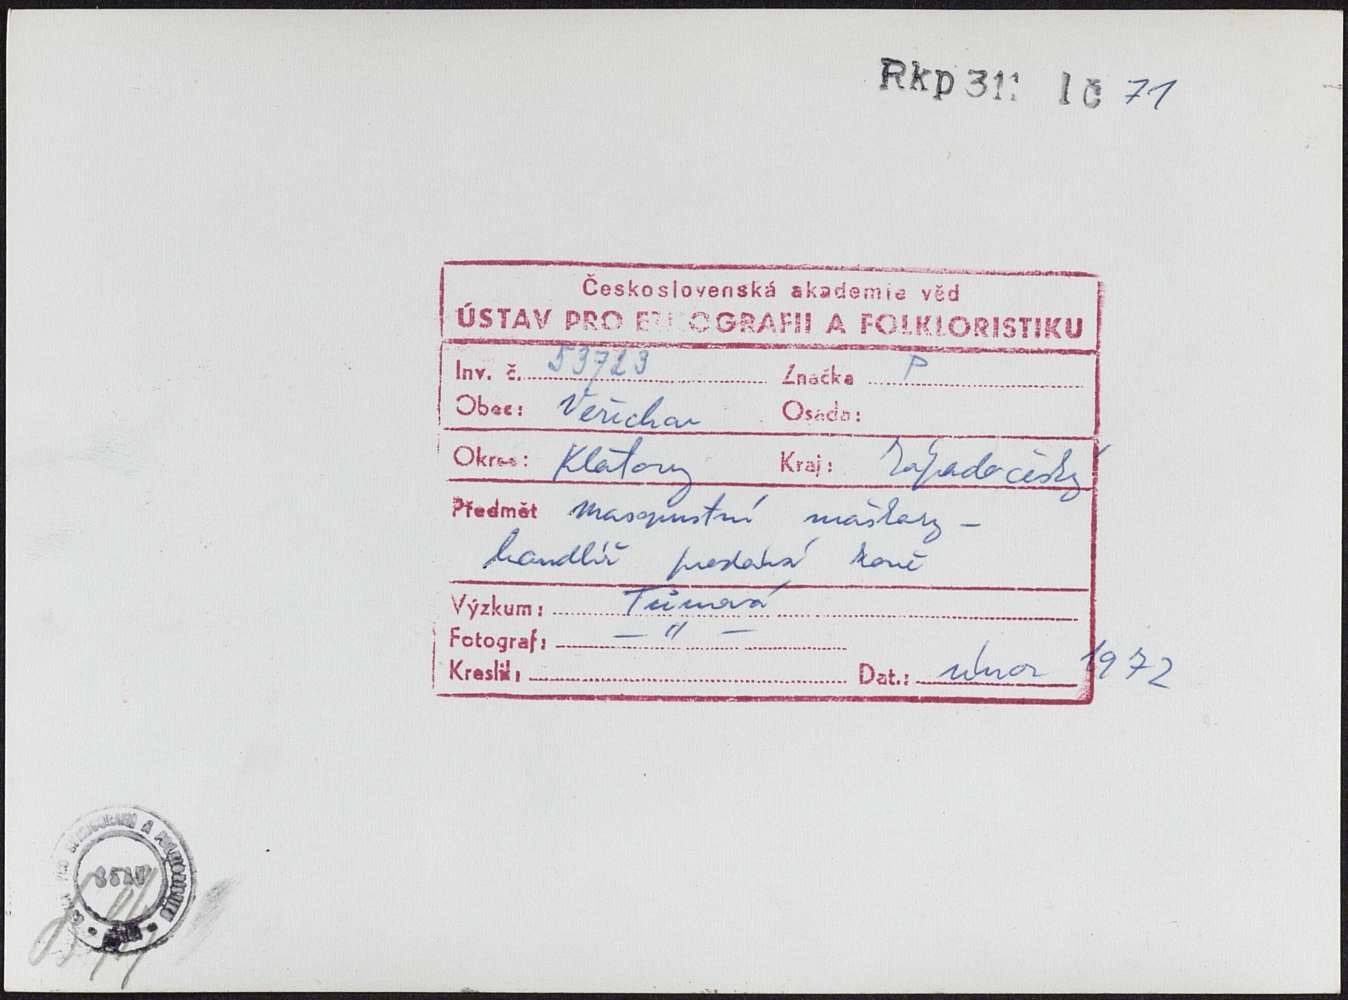 Rkp 311 IČ 71
Československá akademie věd
ÚSTAV PRO ETNOGRAFII A FOLKLORISTIKU
Inv. č. 53723 Značka P
Obec: Veřechov Osada:
Okres: Klatovy Kraj: Západočeský
Předmět masopustní maškary -
handlíř prodává koně
Výzkum: Tůmová
Fotograf: - " -
Kreslil: Dat.: únor 1972